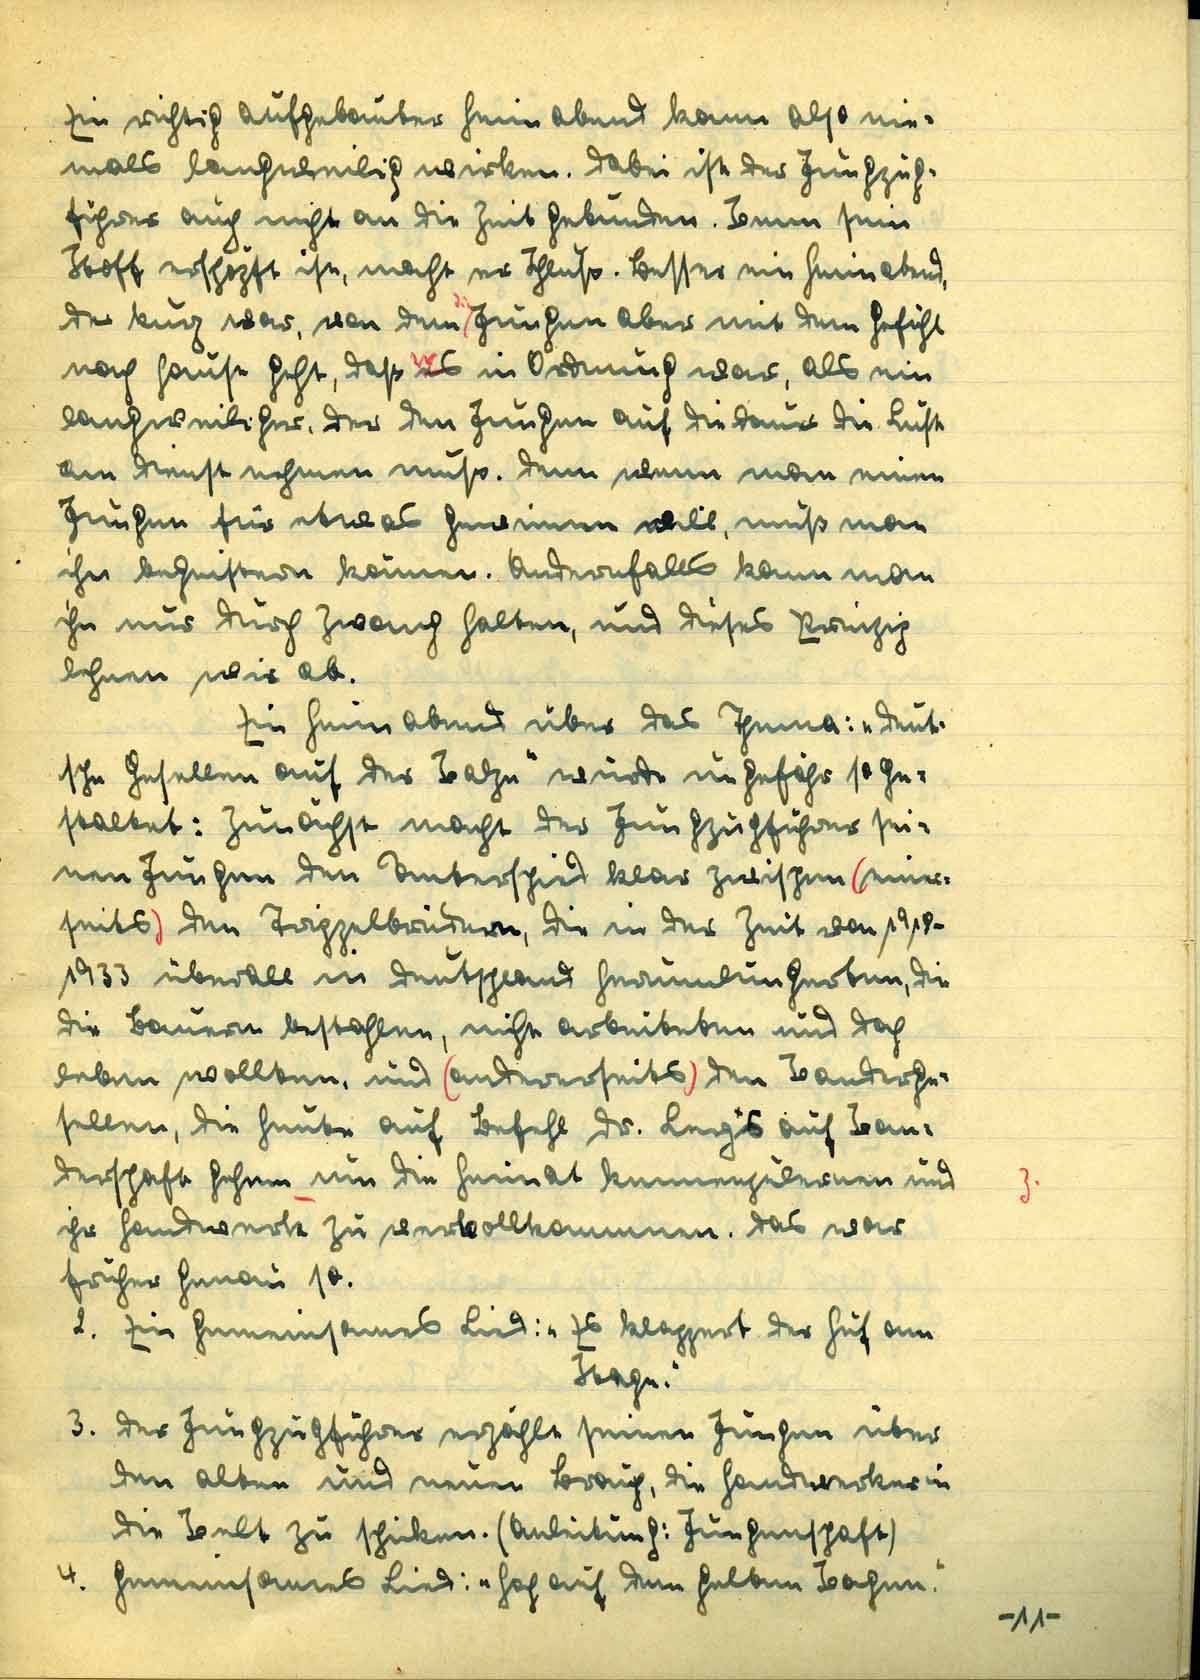 Ein richtig aufgebauter Heimabend kann also nie-
mals langweilig wirken. Dabei ist der Jungzug-
führer auch nicht an die Zeit gebunden. Wenn sein
Stoff erschöpft ist, macht er Schluß. Besser ein Heimabend,
der kurz war, von dem die (Jungen aber mit dem Gefühl
nach Hause geht, daß es in Ordnung war, als ein
langweiliger, der den Jungen auf die Dauer die Lust
am Dienst nehmen muß. Denn wenn man einen
Jungen für etwas gewinnen will, muß man
ihn begeistern können. Andernfalls kann man
ihn nur durch Zwang halten, und dieses Prinzip
lehnen wir ab.
Ein Heimabend über das Thema: „Deut-
sche Gesellen auf der Walze“ würde ungefähr so ge-
staltet: Zunächst macht der Jungzugführer sei-
nen Jungen den Unterschied klar zwischen (einer-
seits) den Trippelbrüdern, die in der Zeit von 1918-
1933 überall in Deutschland herumlungerten, die
die Bauern bestahlen, nicht arbeiteten und doch
leben wollten, und (andererseits) den Wanderge-
sellen, die heute auf Befehl Dr. Ley's auf Wan-
derschaft gehen um die Heimat kennenzulernen und
3.
ihr Handwerk zu vervollkommnen. Das war
früher genau so.
2. Ein gemeinsames Lied: „Es klappert der Huf am
Stege.“
3. Der Jungzugführer erzählt seinen Jungen über
den alten und neuen Brauch, die Handwerker in
die Welt zu schicken. (Anleitung: Jungenschaft)
4. Gemeinsames Lied: „Hoch auf dem gelben Wagen.“
-11-